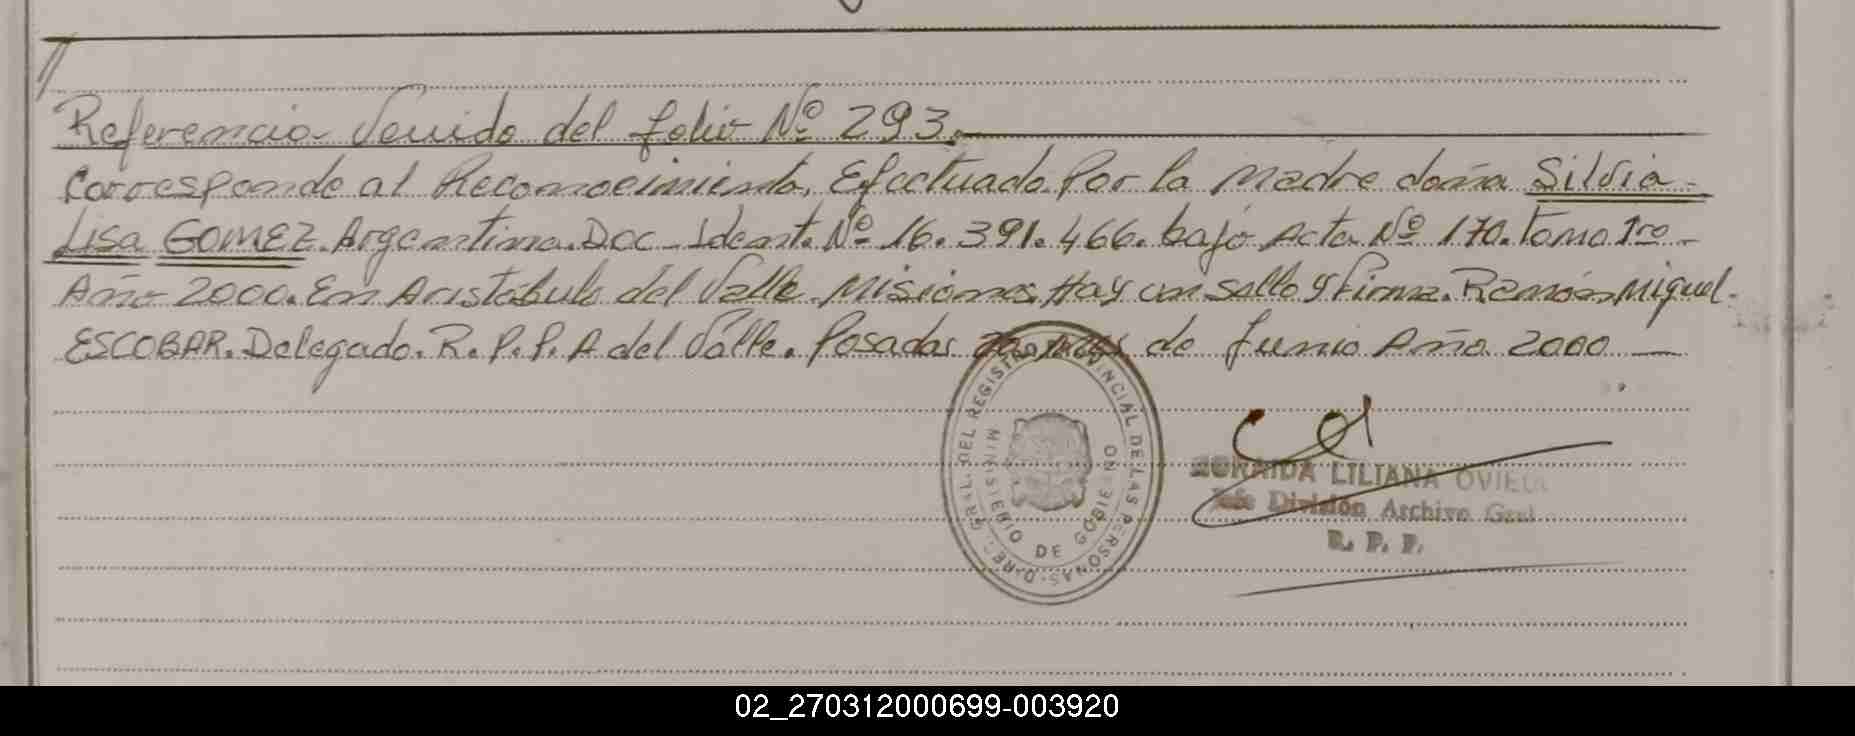 Referencia Venida del folio Nº 293.
Corresponde al Reconocimiento, Efectuado Por la Madre doña Silvia
Lisa GOMEZ. Argentina. Doc. Ident. Nº 16.391.466. bajo Acta Nº 170. Tomo 1ro
Año 2000. En Aristóbulo del Valle Misiones. Hay un Sello y Firma. Ramón Miguel
ESCOBAR. Delegado. R.P.P. A del Valle. Posadas de Junio Año 2000
DIREC. GRAL. DEL REGISTRO PROVINCIAL DE LAS PERSONAS
MINISTERIO DE GOBIERNO
ZORAIDA LILIANA OVIEDO
Jefe División Archivo Gral
R. P. P.
02_270312000699-003920